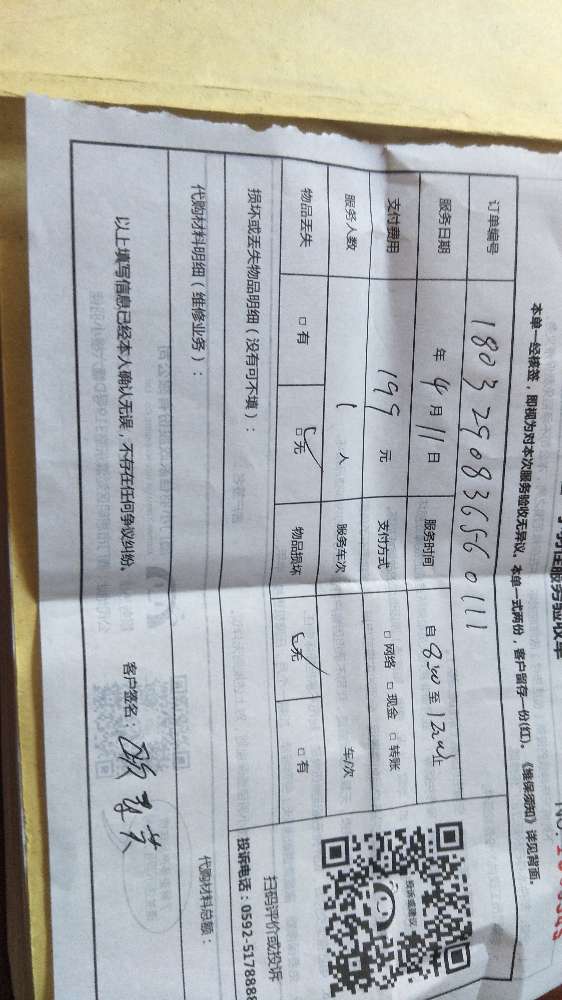 服务验收单
本单一经核签，即视为对本次服务验收无异议。本单一式两份，客户留存一份(红)。《维保须知》详见背面。
订单编号 180329083656 0111
服务日期 年 4 月 11 日 服务时间 自 8:00 至 12:00 止
支付费用 199 元 支付方式 □ 网络 □ 现金 □ 转账
服务人数 1 人 服务车次 车/次
物品丢失 □ 有 □ 无 物品损坏 □ 无 □ 有
损坏或丢失物品明细（没有可不填）：
代购材料明细（维修业务）：
代购材料总额：
以上填写信息已经本人确认无误，不存在任何争议纠纷。
客户签名：
投诉或建议
扫码评价或投诉
投诉电话：0592-5178888